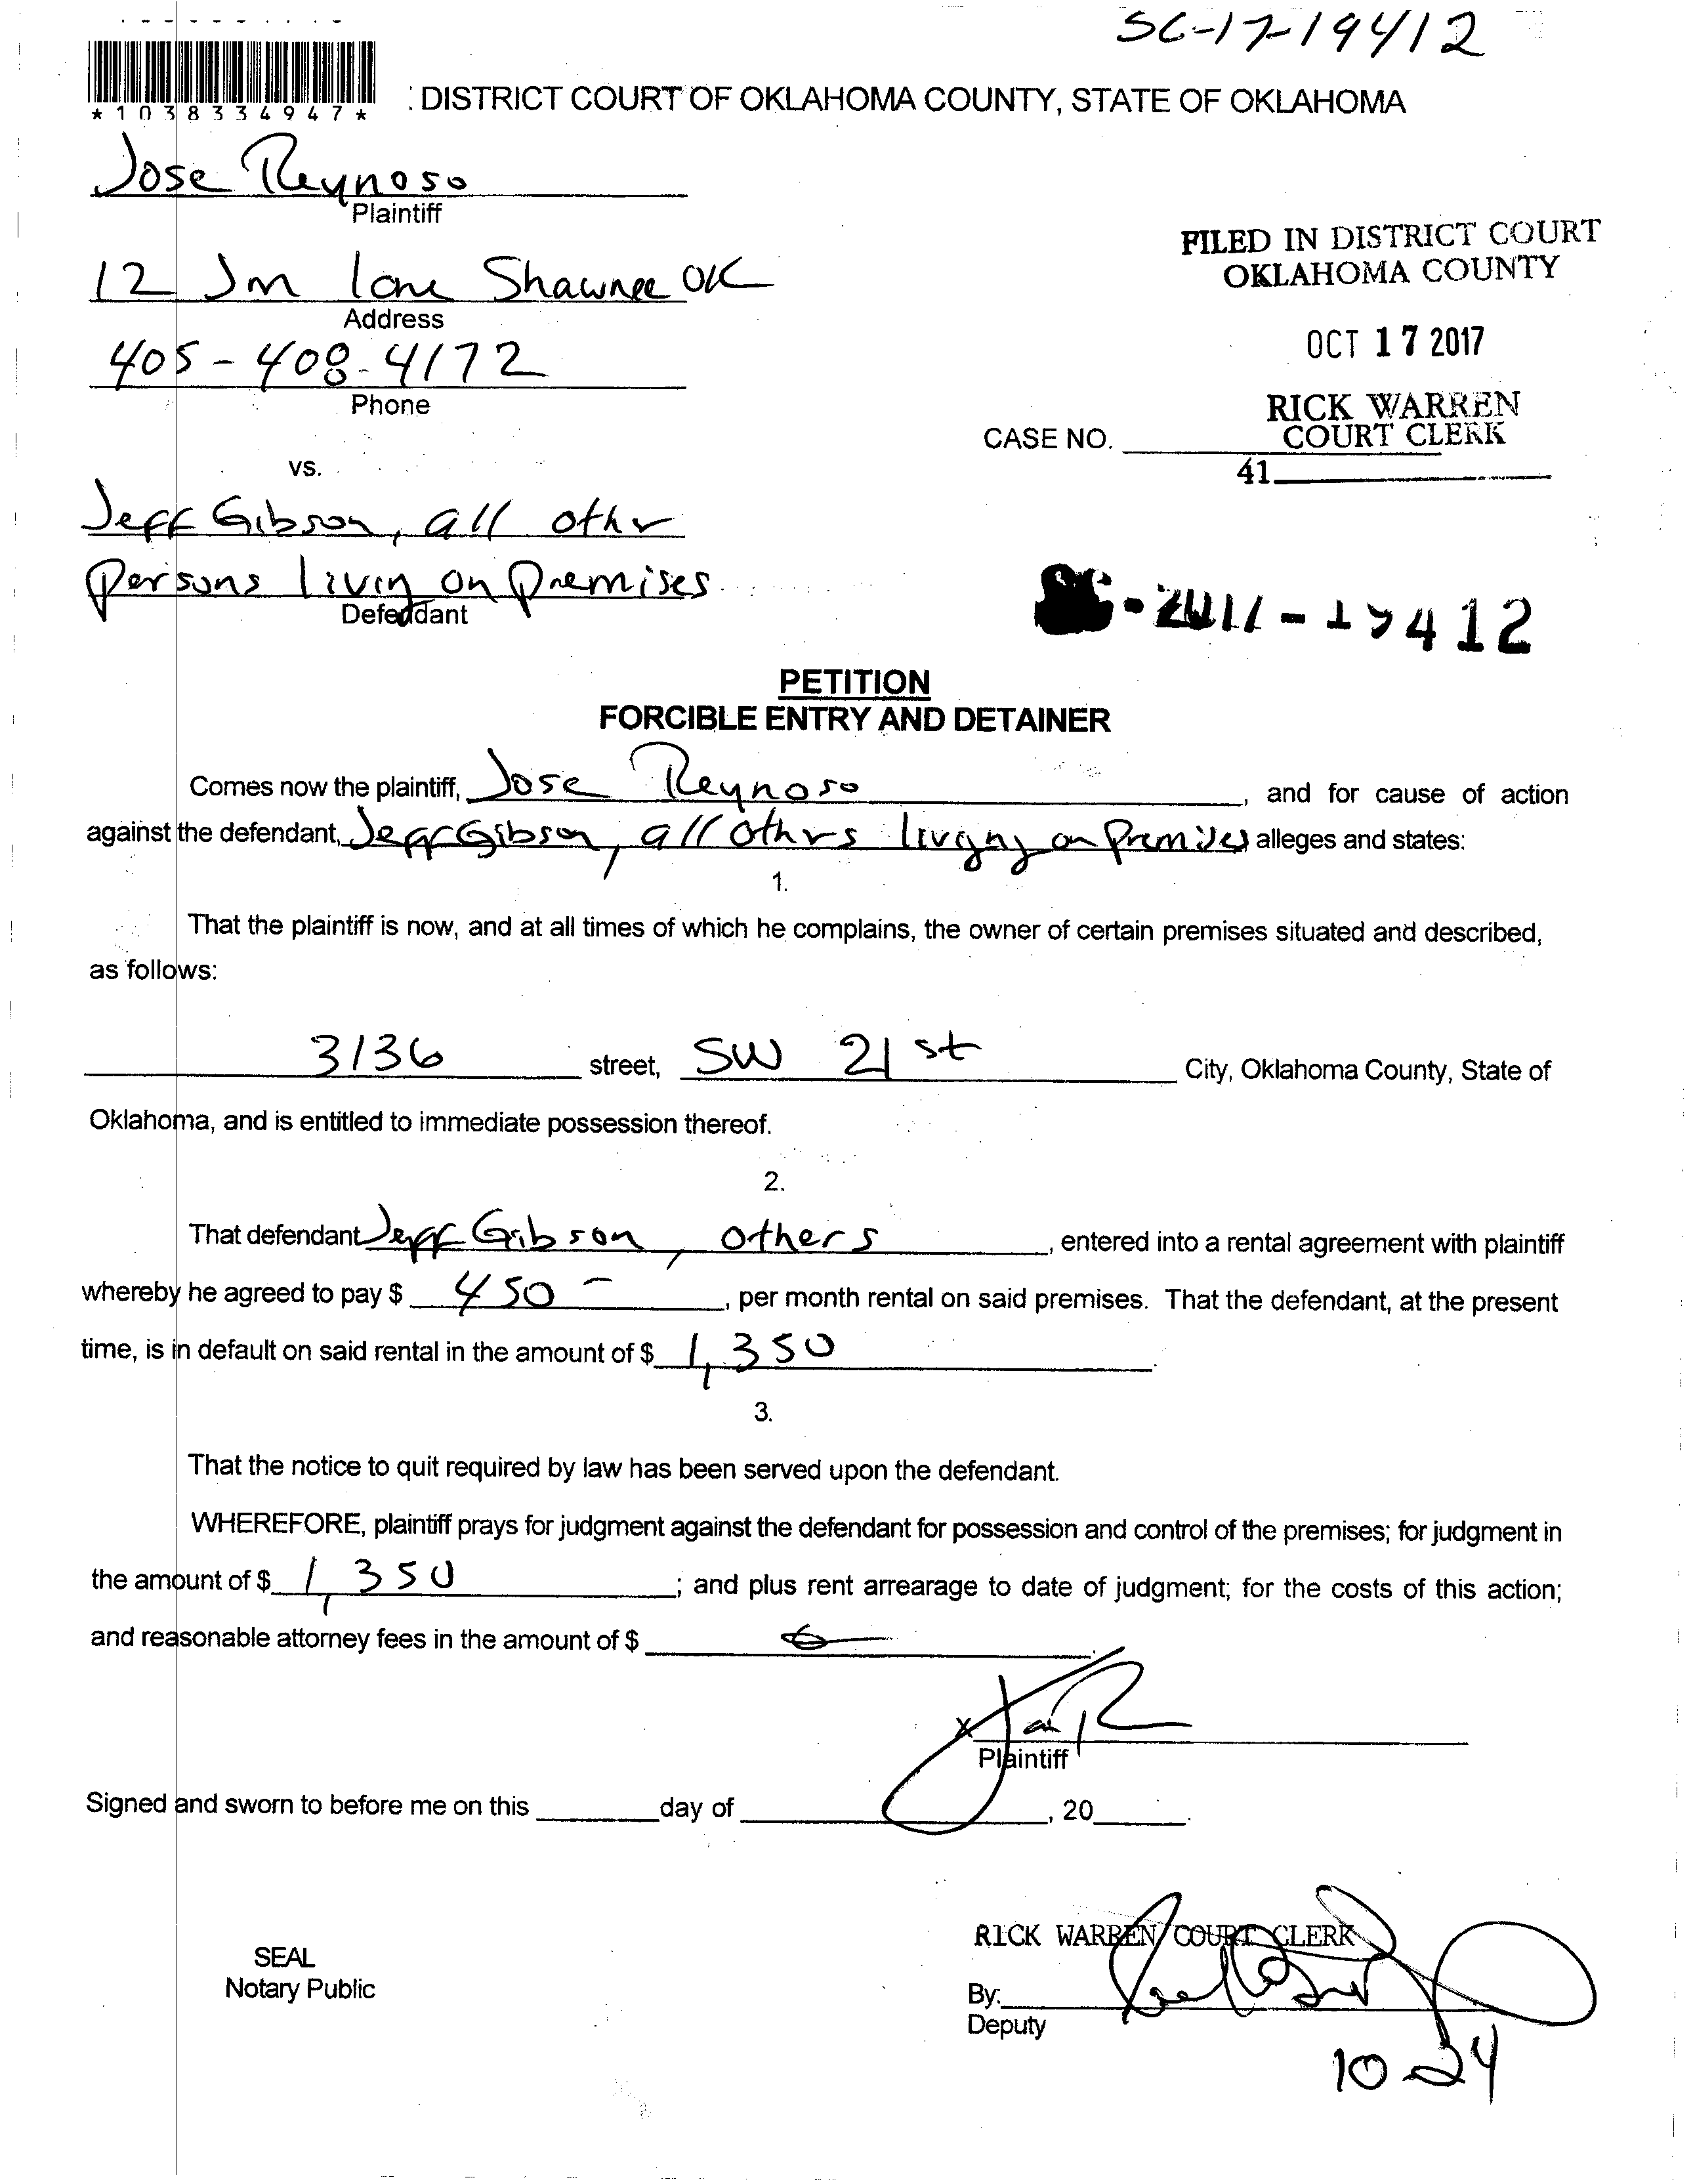 SC-17-19412
*1038334947*
: DISTRICT COURT OF OKLAHOMA COUNTY, STATE OF OKLAHOMA
Jose Reynoso
Plaintiff
12 Jm lane Shawnee OK
Address
405-408-4172
Phone
FILED IN DISTRICT COURT
OKLAHOMA COUNTY
OCT 17 2017
RICK WARREN
COURT CLERK
CASE NO.
41
vs.
Jeff Gibson, all othr
persons livin on premises
Defendant
412
PETITION
FORCIBLE ENTRY AND DETAINER
Comes now the plaintiff, Jose Reynoso, and for cause of action
against the defendant, Jeff Gibson, all othrs on alleges and states:
1.
That the plaintiff is now, and at all times of which he complains, the owner of certain premises situated and described,
as follows:
3136 street, SW 21st City, Oklahoma County, State of
Oklahoma, and is entitled to immediate possession thereof.
2.
That defendant Jeff Gibson, others, entered into a rental agreement with plaintiff
whereby he agreed to pay $ 450 -, per month rental on said premises. That the defendant, at the present
time, is in default on said rental in the amount of $ 1,350.
3.
That the notice to quit required by law has been served upon the defendant.
WHEREFORE, plaintiff prays for judgment against the defendant for possession and control of the premises; for judgment in
the amount of $ 1,350; and plus rent arrearage to date of judgment; for the costs of this action;
and reasonable attorney fees in the amount of $
x
Plaintiff
Signed and sworn to before me on this ______ day of ______, 20____.
RICK WARREN COURT CLERK
SEAL
Notary Public
By:
Deputy
10-24